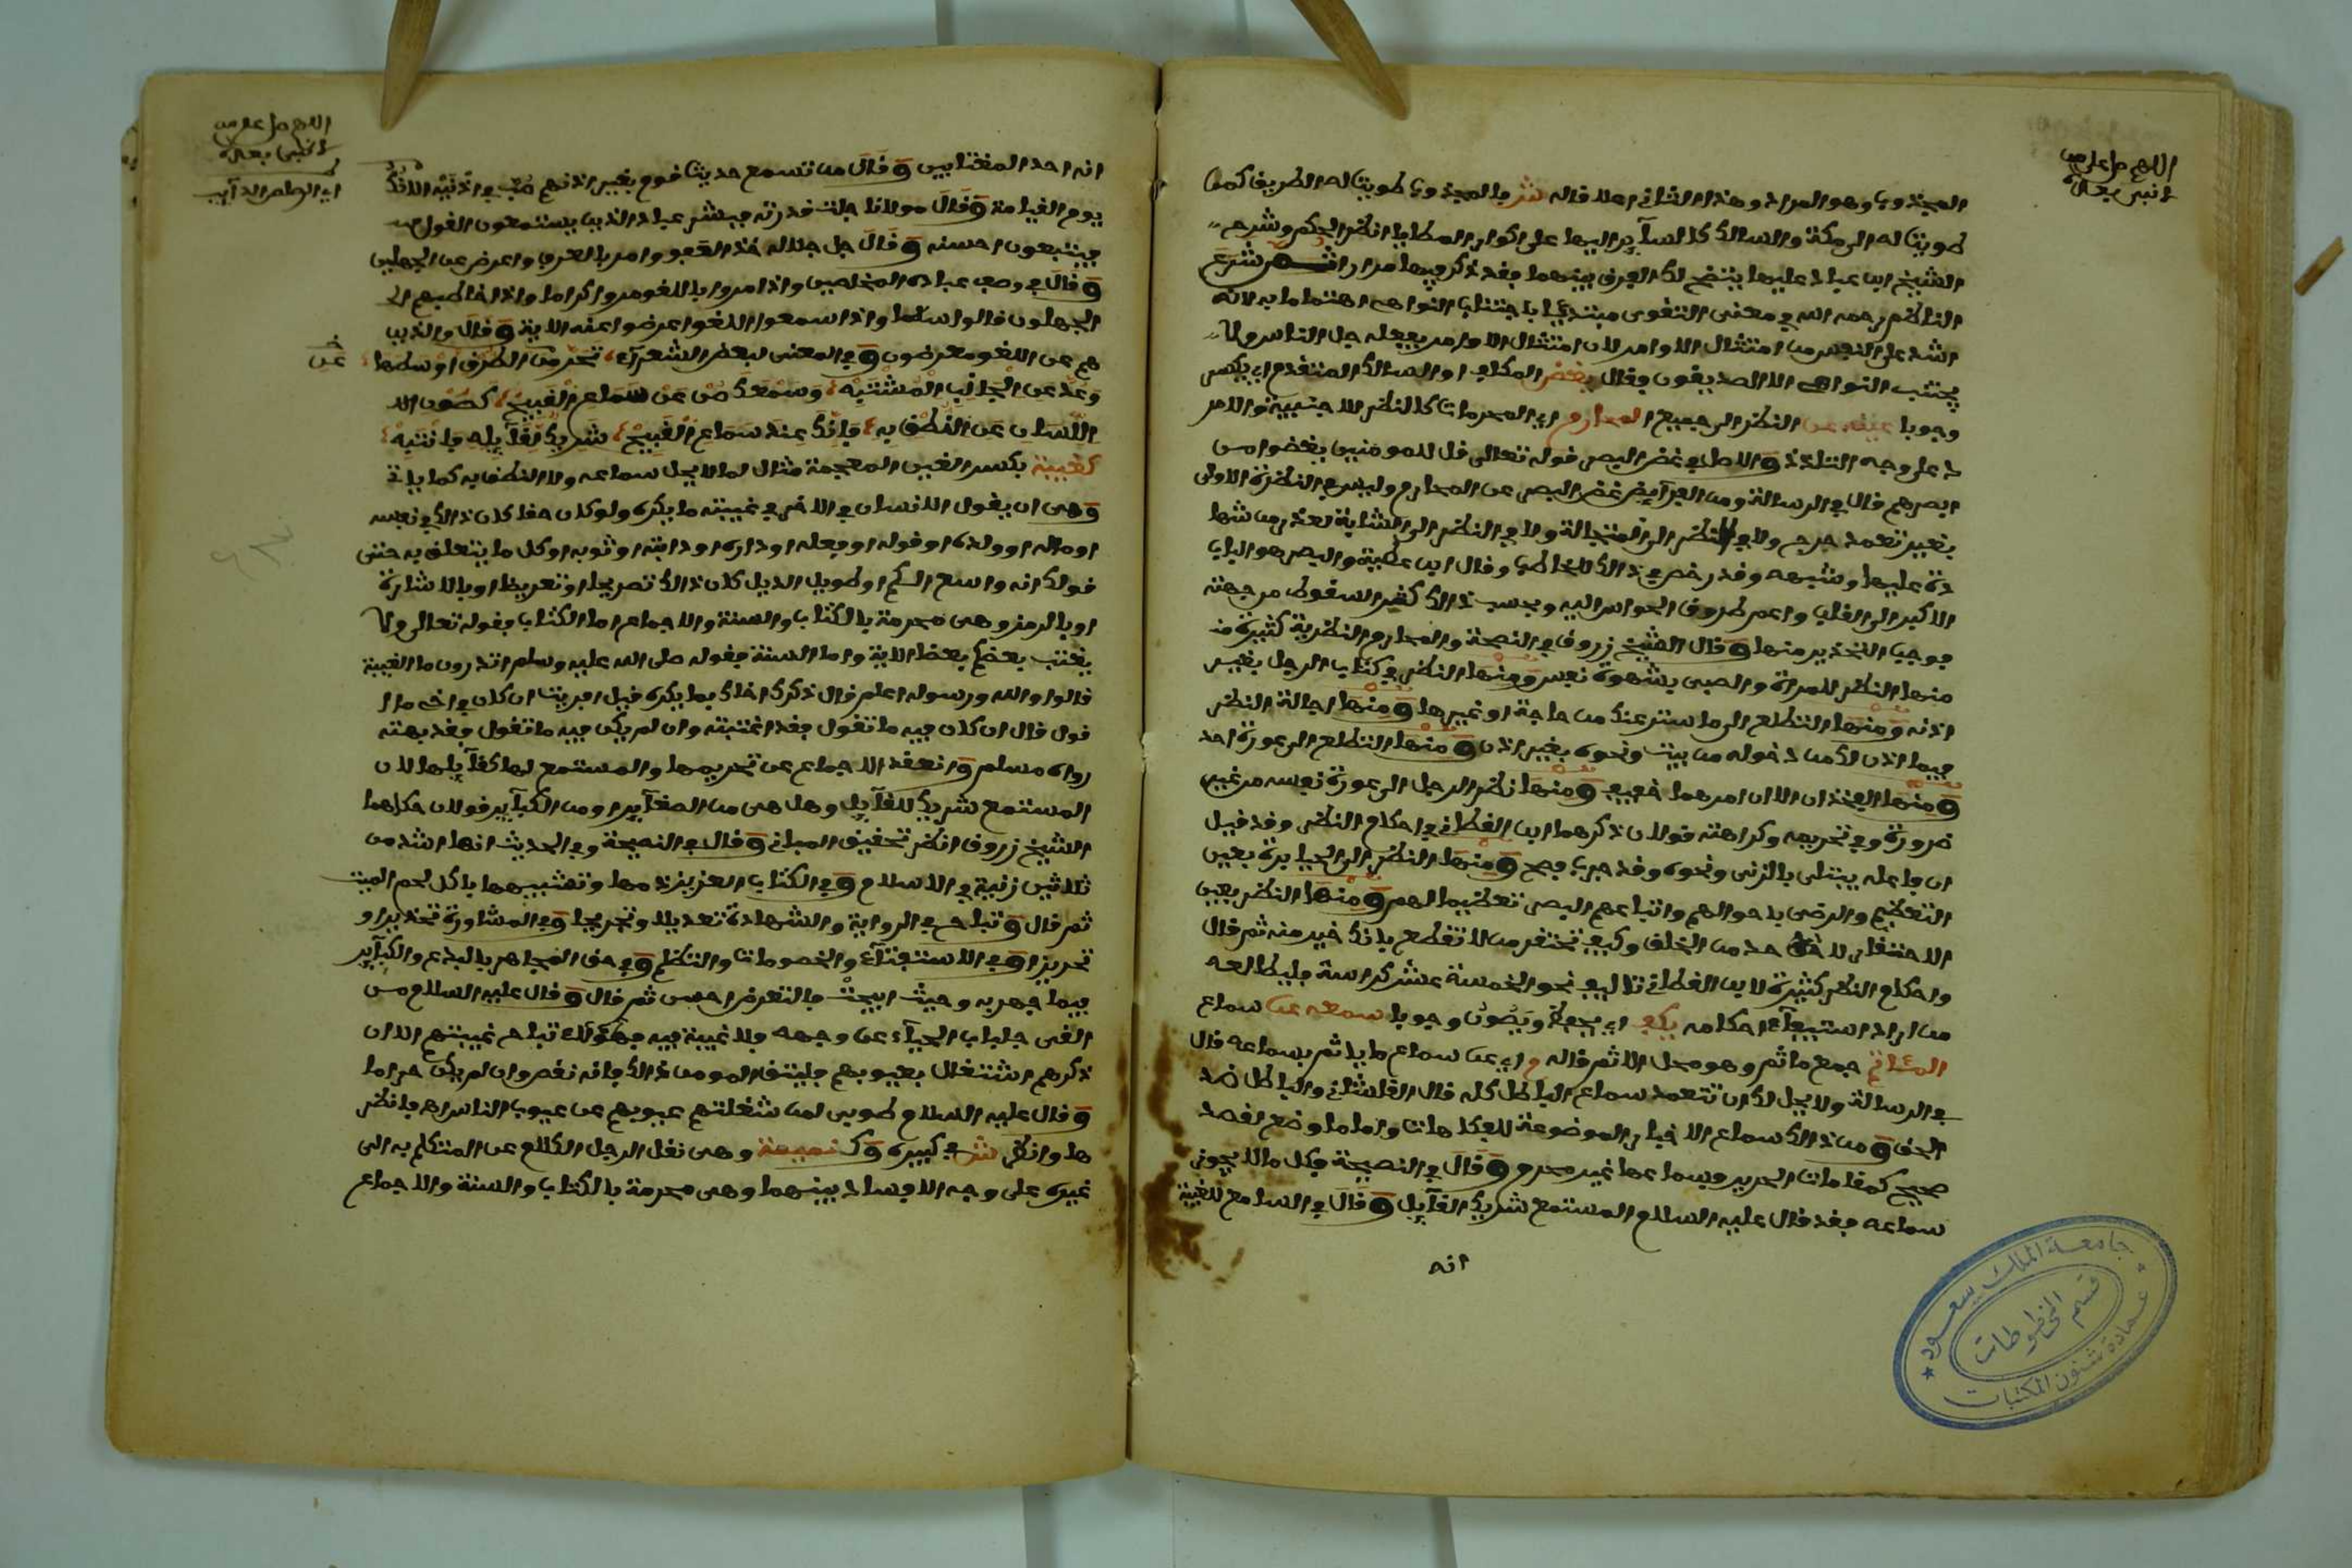 اللهم صل على من
لا نبي بعده
المجذوب وهو المراد وهذا الثاني اعلا قاله ش بالمجذوب طويت له الطريق كمن
طويت له الى مكة والسالك كالسآير اليها على اكوار المطايا انظر الحكم وشرح
الشيخ ابن عباد عليها يتضح لك الفرق بينهما فقد ذكر فيهما مرارا شرع
الناظم رحمه الله في معنى التقوى مبتدئا باجتناب النواهي اهتماما به لانه
اشد على النفس من امتثال الاوامر لان امتثال الاوامر يفعله جل الناس ولا
يجتنب النواهي الا الصديقون فقال يغض المكلف او السالك المتقدم اي يكف
وجوبا عينه عن النظر الى جميع المحارم اي المحرمات كالنظر للاجنبية والامر
د على وجه التلذذ والاصل في غض البصر قوله تعالى قل للمومنين يغضوا من
ابصرهم قال في الرسالة ومن الفرآيض غض البصر عن المحارم وليس في النظرة الاولى
بغير تعمد حرج ولا في النظر الى المتجالة ولا في النظر الى الشابة لعذر من شها
دة عليها وشبهه وقد رخص في ذالك للخاطب وقال ابن عطية والبصر هو الباب
الاكبر الى القلب واعمر طروق الحواس اليه وبحسب ذالك كثر السقوط من جهته
فوجب التحذير منها وقال الشيخ زروق في النصحة والمحارم النظرية كثيرة
منها النظر للمراة والصبى بشهوة نفس ومنها النظر في كتاب الرجل بغير
اذنه ومنها التطلع الى ما ستر عنك من حاجة او غيرها ومنها اجالة النظر
فيما اذن لك من دخوله من بيت ونحوه بغير اذن ومنها التطلع الى عورة احد
ومنها الفخذان الا ان امرهما خفيف ومنها نظر الرجل الى عورة نفسه من غير
ضرورة وفي تحريمه وكراهته قولان ذكرهما ابن القطان في احكام النظر وقد قيل
ان فاعله يبتلى بالزنى ونحوه وقد جرب فصح ومنها النظر الى الجبابرة بعين
التعظيم والرضى باحوالهم واتباعهم البصر تعظيما لهم ومنها النظر بعين
الاحتقار لاحد من الخلق وكيف تحتقر من لا تقطع بانك خير منه ثم قال
واحكام النظر كثيرة لابن القطان تاليف نحو الخمسة عشر كراسة فليطالعه
من اراد استيفآء احكامه يكف اي يحفظ ويصون وجوبا سمعه عن سماع
المئاثم جمع ماثم وهو محل الاثم قاله م اي عن سماع ما ياثم بسماعه قال
في الرسالة ولا يحل لك ان تتعمد سماع الباطل كله قال القلشاني والباطل ضد
الحق ومن ذالك سماع الاخبار الموضوعة للفكاهات واما ما وضع لقصد
صحيح كمقامات الحرير فسماعها غير محرم وقال في النصيحة فكل ما لا يجوز
سماعه فقد قال عليه السلام المستمع شريك القآيل وقال في السامع للغيبة
انه
جامعة الملك سعود
قسم المخطوطات
عمادة شئون المكتبات
اللهم صل على من
لا نبي بعده
اي الرصاص الذآيب
انه احد المغتابين وقال من تسمع حديث قوم بغير اذنهم صب في اذنيه الانك
يوم القيامة وقال مولانا جلت قدرته فبشر عباد الذين يستمعون القول
فيتبعون احسنه وقال جل جلاله خذ العفو وامر بالعرف واعرض عن الجهلين
وقال في وصف عباده المخلصين واذا مروا باللغو مروا كراما واذا خاطبهم
الجهلون قالوا سلما واذا سمعوا اللغو اعرضوا عنه الاية وقال والذين
هم عن اللغو معرضون وفي المعنى لبعض الشعرآء تحر من الطرق اوسطها
وعد عن الجانب المشتبه وسمعك صن عن سماع القبيح كصون
اللسان عن النطق به فانك عند سماع القبيح شريك لقآيله فانتبه
كغيبة بكسر الغين المعجمة مثال لما لا يحل سماعه ولا النطق به كما ياتي
وهي ان يقول الانسان في الاخر في غيبته ما يكره ولو كان حقا كان ذالك في نفسه
او ماله او ولده او قوله او فعله او داره او دابته او ثوبه او كل ما يتعلق به حتى
قولك انه واسع الكم او طويل الذيل كان ذالك تصريحا او تعريضا او بالاشارة
او بالرمز وهي محرمة بالكتاب والسنة والاجماع اما الكتاب فقوله تعالى ولا
يغتب بعضكم بعضا الاية واما السنة فقوله صلى الله عليه وسلم اتدرون ما الغيبة
قالوا الله ورسوله اعلم قال ذكرك اخاك بما يكره قيل افريت ان كان في اخي ما ا
قول قال ان كان فيه ما تقول فقد اغتبته وان لم يكن فيه ما تقول فقد بهته
رواه مسلم وانعقد الاجماع عن تحريمها والمستمع لها كقآيلها لان
المستمع شريك للقآيل وهل هي من الصغآير او من الكبآير قولان حكاهما
الشيخ زروق انظر تحقيق المباني وقال في النصيحة وفي الحديث انها اشد من
ثلاثين زنية في الاسلام وفي الكتاب العزيز ذمها وتشبيهها باكل لحم الميت
ثم قال وتباح في الرواية والشهادة تعديلا وتجريحا وفي المشاورة تحذيرا و
تحريزا وفي الاستفتآء والخصومات والتظلم وفي حق المجاهر بالبدع والكبآير
فيما جهر به وحيث ابيحت فالتعرض احسن ثم قال وقال عليه السلام من
القى جلباب الحيآء عن وجهه فلا غيبة فيه فهؤلاء تباح غيبتهم الا ان
ذكرهم اشتغال بعيوبهم فليتق المومن ذالك فانه نقص وان لم يكن حراما
وقال عليه السلام طوبى لمن شغلتهم عيوبهم عن عيوب الناس اهـ فانظر
ها وانظر ش في كبيره وك نميمة وهي نقل الرجل الكلام عن المتكلم به الى
غيره على وجه الافساد بينهما وهي محرمة بالكتاب والسنة والاجماع